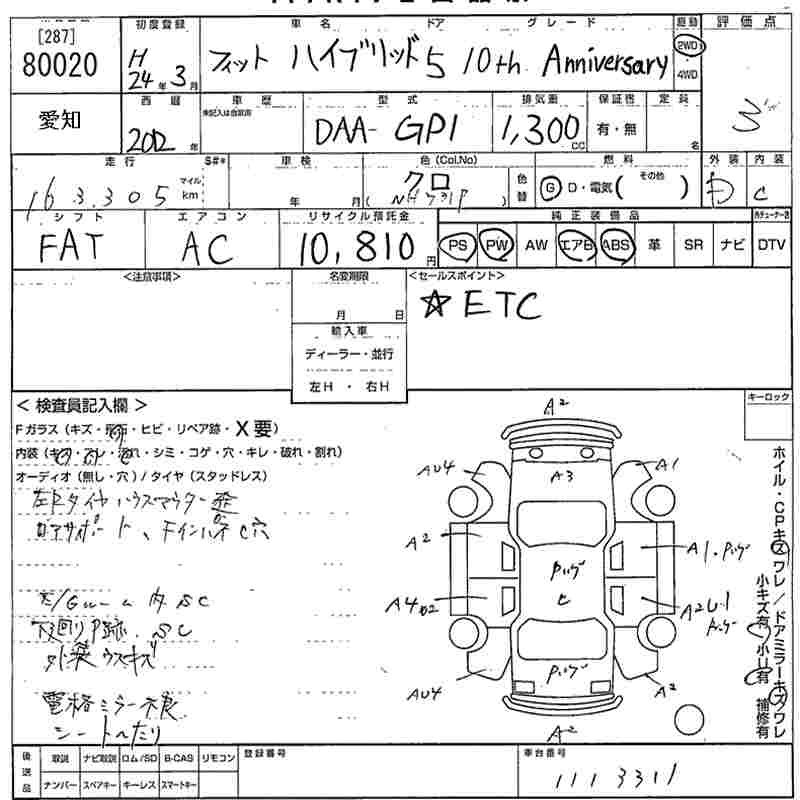 [287]
80020
初度登録
H 24年 3月
車名 ドア グレード
フィット ハイブリッド 5 10th Anniversary
駆動
2WD
4WD
評価点
愛知
西暦
2012年
車歴
未記入は自家用
型式
DAA- GP1
排気量
1,300 CC
保証書
有・無
定員
名
走行 S#*
163,305 マイル km
車検
年 月
色(Col.No)
クロ
( NH731P )
色替
燃料
G D・電気( その他 )
外装
D
内装
C
シフト
FAT
エアコン
AC
リサイクル預託金
10,810円
純正装備品
PS PW AW エアB ABS 革 SR ナビ DTV
<注意事項>
名変期限
月 日
輸入車
ディーラー・並行
左H ・ 右H
<セールスポイント>
☆ETC
<検査員記入欄>
Fガラス(キズ・飛石・ヒビ・リペア跡・X要)
内装(キズ・スレ・汚れ・シミ・コゲ・穴・キレ・破れ・割れ)
オーディオ(無し・穴)/タイヤ(スタッドレス)
下回りP跡、SC
外装ウスキズ
電格ミラー不良
シートへたり
キーロック
ホイル・CPキズワレ/ドアミラーキズワレ
小キズ有 小U有 補修有
A2
AU4
A3
A1
A2
A1・Pハゲ
Pハゲ
C
A4
A2
Pハゲ
AU4
A2
A2
後送品
取説 ナビ取説 ロム/SD B-CAS リモコン
ナンバー スペアキー キーレス スマートキー
登録番号
車台番号
1113311